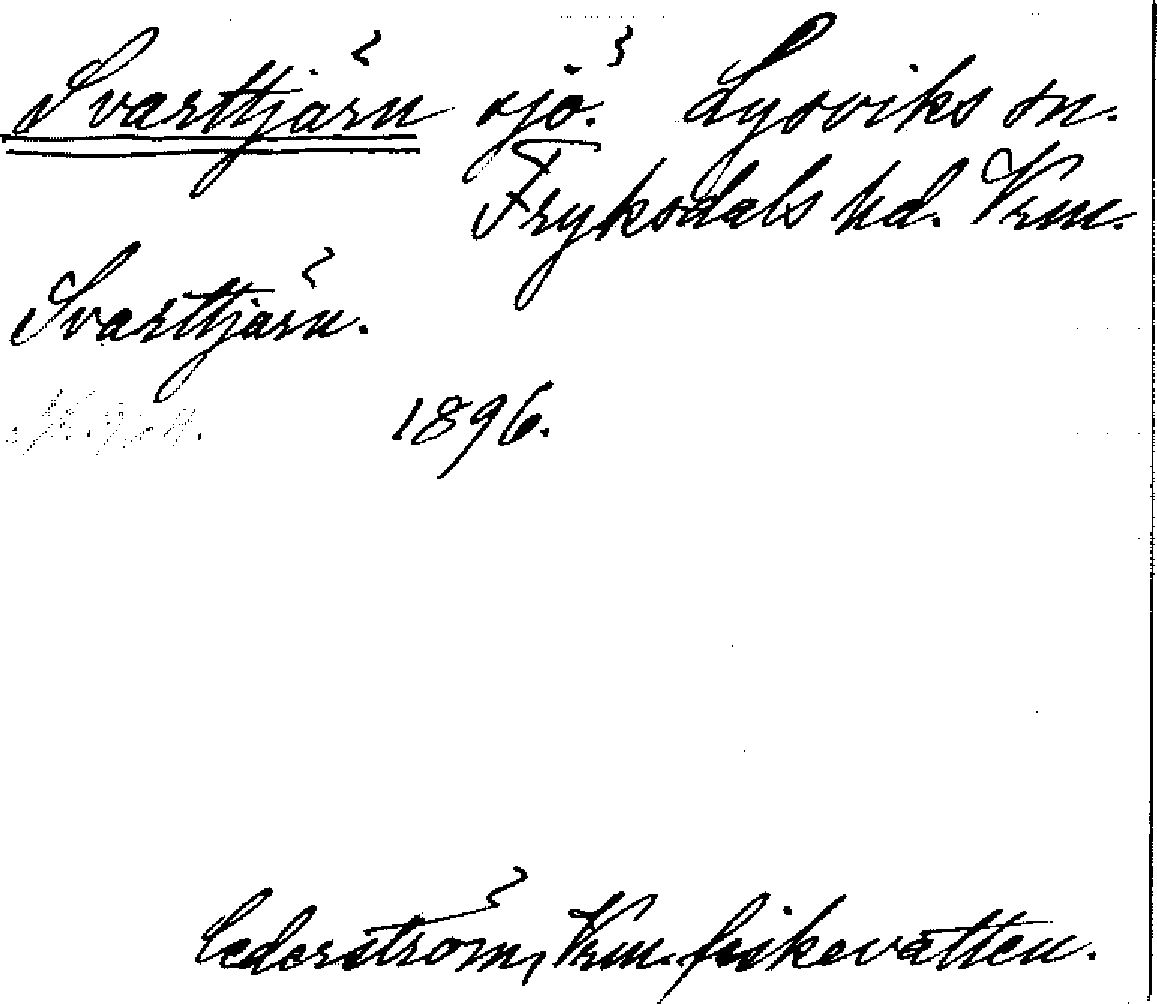 Svarttjärn sjö. Lysviks sn.
Fryksdals hd. Vrm.
Svarttjärn.
1896.
Cederström, Vrm. fiskevatten.